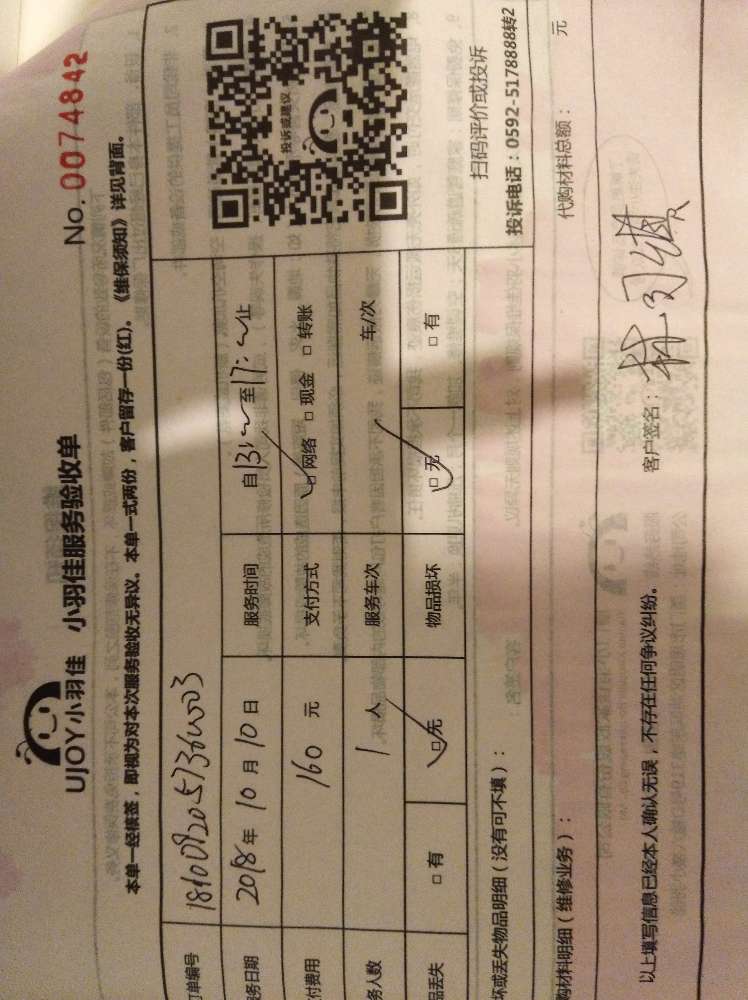 UJOY小羽佳 小羽佳服务验收单
No. 0074842
本单一经核签，即视为对本次服务验收无异议。本单一式两份，客户留存一份(红)。《维保须知》详见背面。
订单编号
务日期 2018年 10月 10日 服务时间 自 13:~ 至 17:~ 止
付费用 160 元 支付方式 □网络 □现金 □转账
务人数 1 人 服务车次 车/次
品丢失 □有 □无 物品损坏 □无 □有
投诉或建议
扫码评价或投诉
投诉电话：0592-5178888转2
坏或丢失物品明细（没有可不填）：
购材料明细（维修业务）： 代购材料总额： 元
以上填写信息已经本人确认无误，不存在任何争议纠纷。 客户签名：